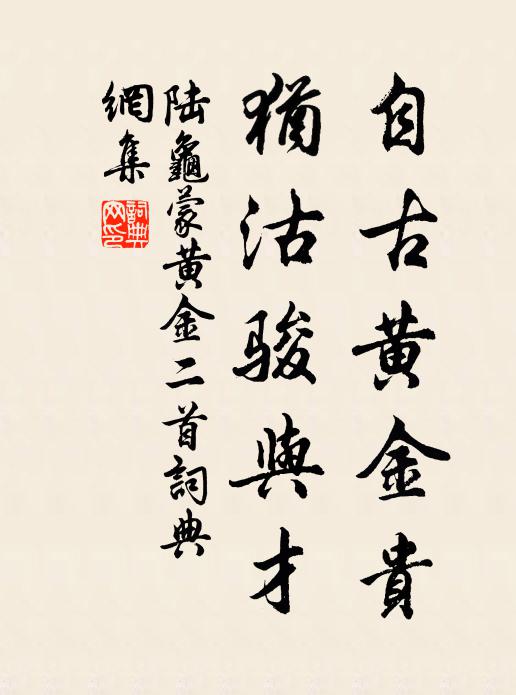 自古黄金貴
猶沽駿與才
陆龜蒙黄金二首詞典
網集
詞典網印